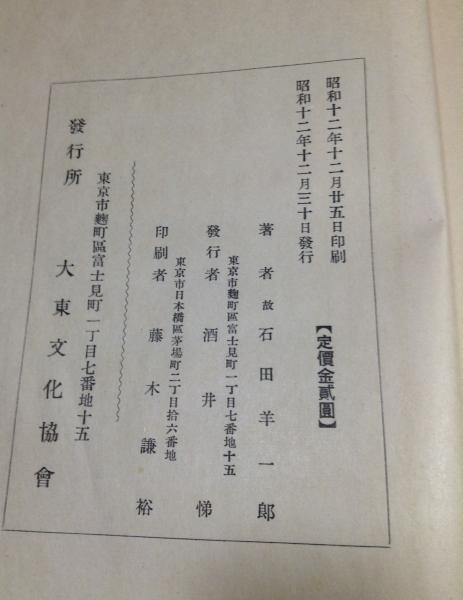 昭和十二年十二月廿五日印刷
昭和十二年十二月三十日發行
【定價金貳圓】
著者 故 石田羊一郎
東京市麴町區富士見町一丁目七番地十五
發行者 酒井悌
東京市日本橋區茅場町二丁目拾六番地
印刷者 藤木謙裕
東京市麴町區富士見町一丁目七番地十五
發行所 大東文化協會